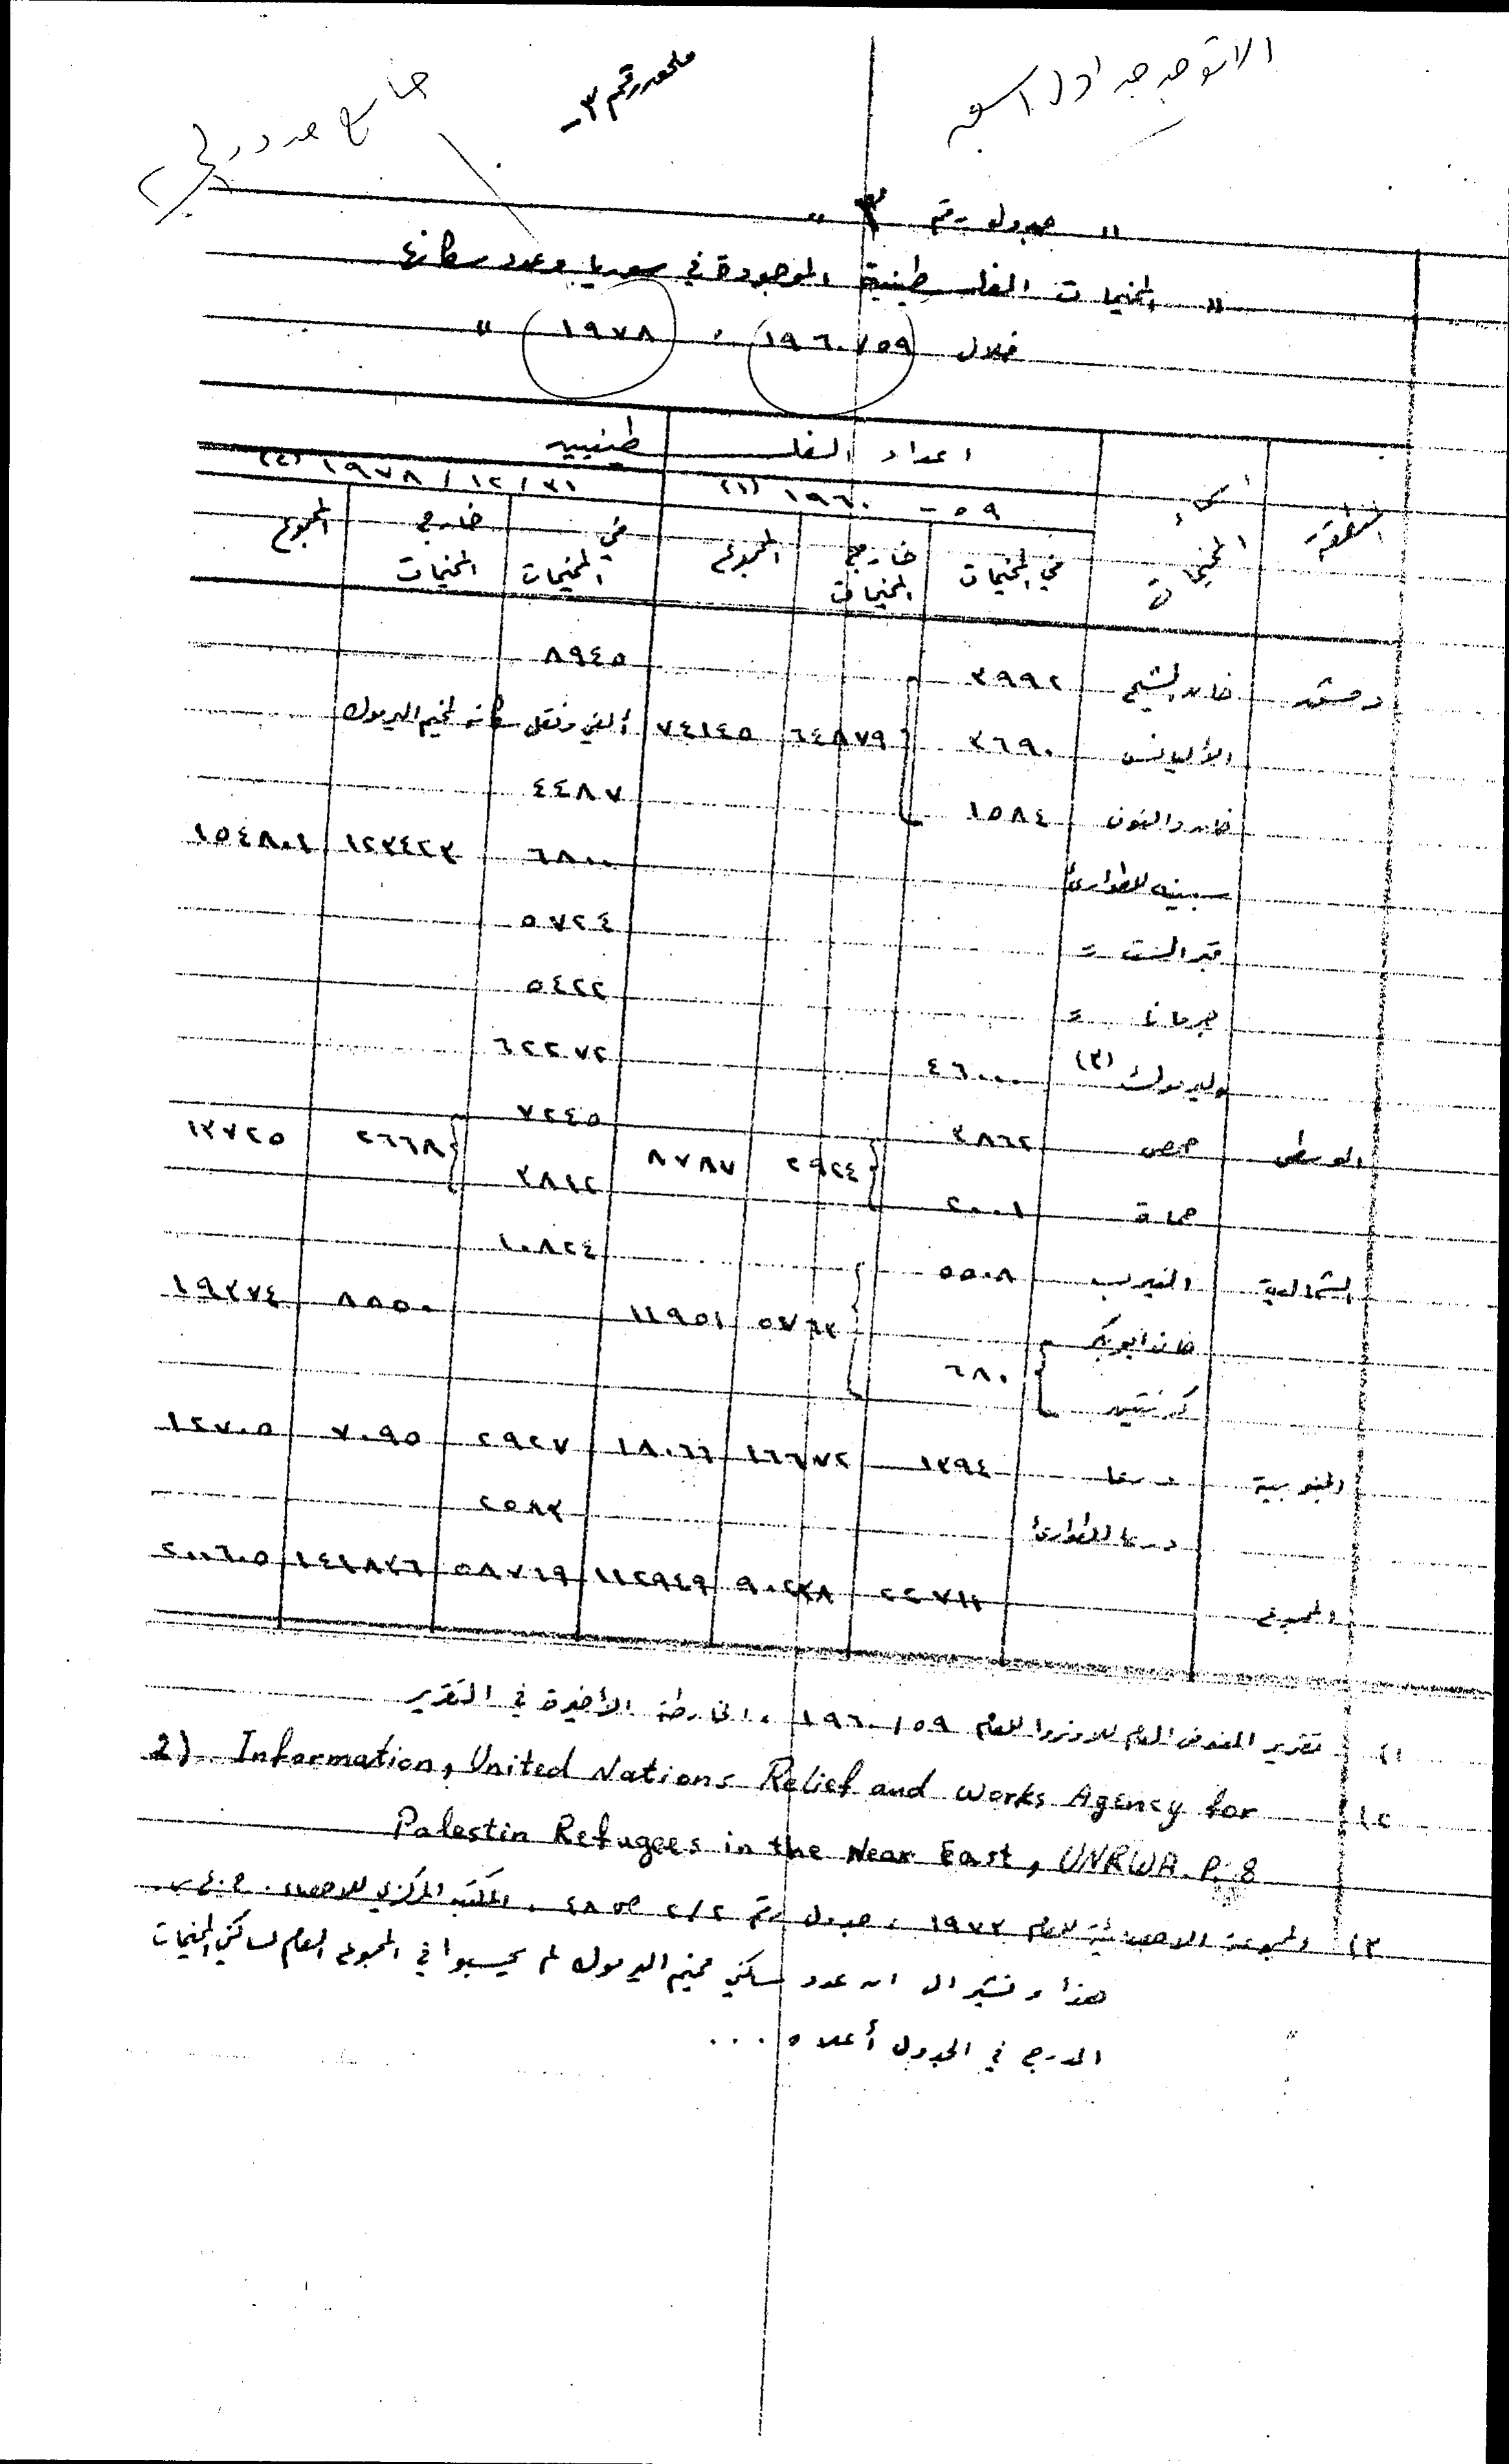 ملحق رقم ٣-
" جدول رقم ٣ "
" المخيمات الفلسطينية الموجودة في سوريا وعدد سكانها
خلال ١٩٦٠/٥٩ ، ١٩٧٨ "
المنطقة | أسماء المخيمات | اعداد الفلسطينيين
٥٩ - ١٩٦٠ (١) | ٣١ / ١٢ / ١٩٧٨ (٢)
في المخيمات | خارج المخيمات | المجموع | في المخيمات | خارج المخيمات | المجموع
دمشق | خان الشيح | ٣٩٩٢ | ٨٩٤٥
الأليانس | ٣٦٩٠ | ٦٤٨٧٩ | ٧٤١٤٥ | ألغي ونقل سكانه لمخيم اليرموك
خان دالنون | ١٥٨٤ | ٤٤٨٧
سبينه للطوارئ | ٦٨٠٠ | ١٢٣٤٢٣ | ١٥٤٨٠١
قبر الست = | ٥٧٢٤
جرمانا = | ٥٤٢٢
واليرموك (٣) | ٤٦٠٠٠ | ٦٢٢٧٢
الوسطى | حمص | ٣٨٦٢ | ٢٩٢٤ | ٨٧٨٧ | ٧٢٤٥ | ٢٦٦٨ | ١٣٧٢٥
حماة | ٢٠٠١ | ٣٨١٢
الشمالية | النيرب | ٥٥٠٨ | ١٠٨٢٤
خان ابو بكر | ٥٧٦٣ | ١١٩٥١ | ٨٥٥٠ | ١٩٣٧٤
كرنتينا | ٦٨٠
الجنوبية | درعا | ١٣٩٤ | ١٦٦٧٢ | ١٨٠٦٦ | ٢٩٢٧ | ٧٠٩٥ | ١٢٧٠٥
درعا الطوارئ | ٢٥٨٣
المجموع | ٢٢٧١١ | ٩٠٢٣٨ | ١١٢٩٤٩ | ٥٨٧٦٩ | ١٤١٨٣٦ | ٢٠٠٦٠٥
١) تقرير المفوض العام للاونروا للعام ١٩٦٠/٥٩ ، الخارطة الأخيرة في التقرير
٢) 2) Information, United Nations Relief and Works Agency for
Palestin Refugees in the Near East, UNRWA. P. 8
٣) المجموعة الاحصائية للعام ١٩٧٣ ، جدول رقم ٢/٢ ص ٤٨ ، المكتب المركزي للاحصاء . ج.ع.س.
هذا ونشير الى ان عدد ساكني مخيم اليرموك لم يحسبوا في المجموع العام لساكني المخيمات
المدرج في الجدول أعلاه ...